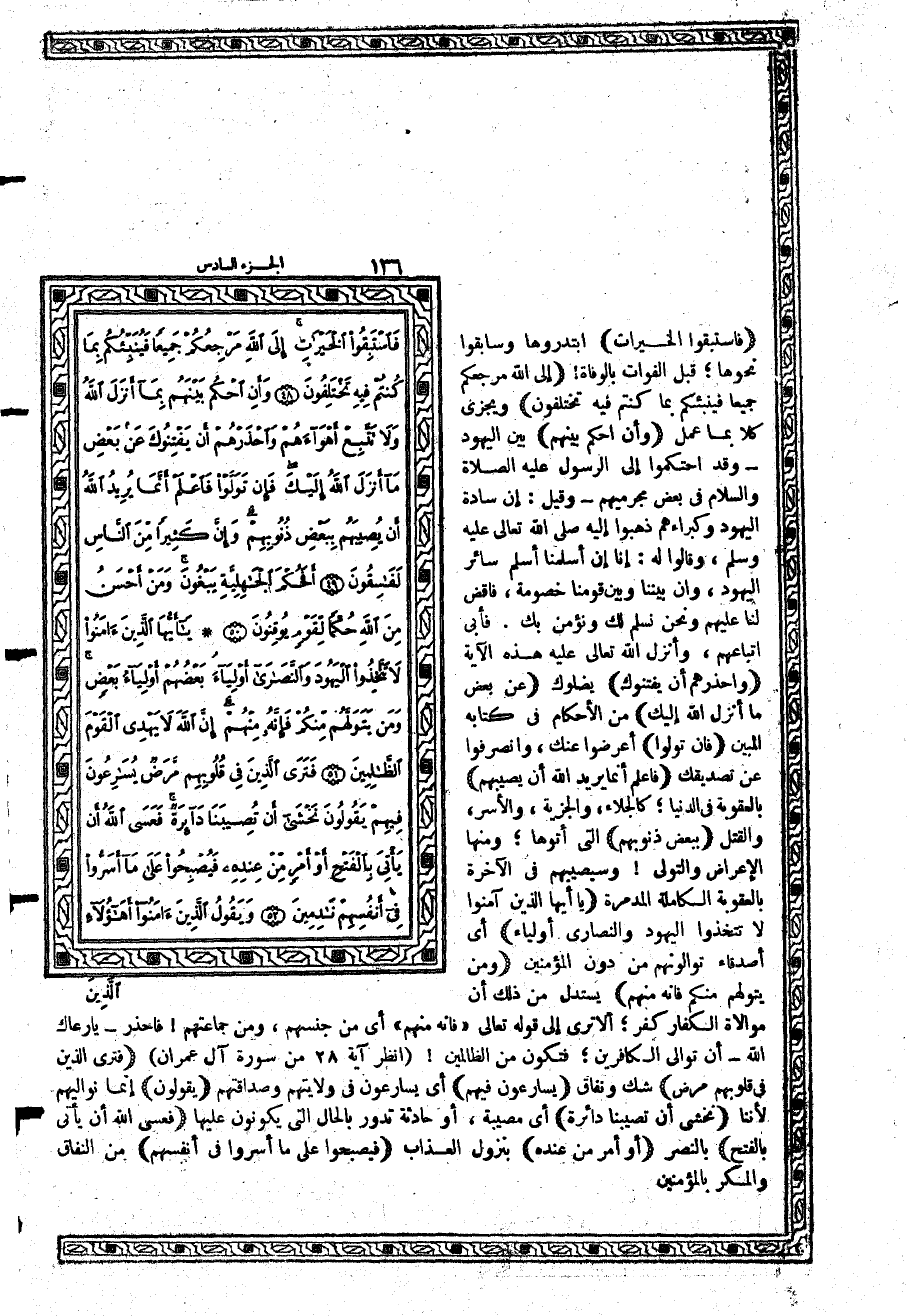 ١٣٦ الجزء السادس
فَٱسْتَبِقُوا۟ ٱلْخَيْرَٰتِ ۚ إِلَى ٱللَّهِ مَرْجِعُكُمْ جَمِيعًا فَيُنَبِّئُكُم بِمَا
كُنتُمْ فِيهِ تَخْتَلِفُونَ ﴿٤٨﴾ وَأَنِ ٱحْكُم بَيْنَهُم بِمَآ أَنزَلَ ٱللَّهُ
وَلَا تَتَّبِعْ أَهْوَآءَهُمْ وَٱحْذَرْهُمْ أَن يَفْتِنُوكَ عَنۢ بَعْضِ
مَآ أَنزَلَ ٱللَّهُ إِلَيْكَ ۖ فَإِن تَوَلَّوْا۟ فَٱعْلَمْ أَنَّمَا يُرِيدُ ٱللَّهُ
أَن يُصِيبَهُم بِبَعْضِ ذُنُوبِهِمْ ۗ وَإِنَّ كَثِيرًا مِّنَ ٱلنَّاسِ
لَفَٰسِقُونَ ﴿٤٩﴾ أَفَحُكْمَ ٱلْجَٰهِلِيَّةِ يَبْغُونَ ۚ وَمَنْ أَحْسَنُ
مِنَ ٱللَّهِ حُكْمًا لِّقَوْمٍ يُوقِنُونَ ﴿٥٠﴾ * يَٰٓأَيُّهَا ٱلَّذِينَ ءَامَنُوا۟
لَا تَتَّخِذُوا۟ ٱلْيَهُودَ وَٱلنَّصَٰرَىٰٓ أَوْلِيَآءَ ۘ بَعْضُهُمْ أَوْلِيَآءُ بَعْضٍ ۚ
وَمَن يَتَوَلَّهُم مِّنكُمْ فَإِنَّهُۥ مِنْهُمْ ۗ إِنَّ ٱللَّهَ لَا يَهْدِى ٱلْقَوْمَ
ٱلظَّٰلِمِينَ ﴿٥١﴾ فَتَرَى ٱلَّذِينَ فِى قُلُوبِهِم مَّرَضٌ يُسَٰرِعُونَ
فِيهِمْ يَقُولُونَ نَخْشَىٰٓ أَن تُصِيبَنَا دَآئِرَةٌ ۚ فَعَسَى ٱللَّهُ أَن
يَأْتِىَ بِٱلْفَتْحِ أَوْ أَمْرٍ مِّنْ عِندِهِۦ فَيُصْبِحُوا۟ عَلَىٰ مَآ أَسَرُّوا۟
فِىٓ أَنفُسِهِمْ نَٰدِمِينَ ﴿٥٢﴾ وَيَقُولُ ٱلَّذِينَ ءَامَنُوٓا۟ أَهَٰٓؤُلَآءِ
ٱلَّذِينَ
(فاستبقوا الخيرات) ابتدروها وسابقوا
نحوها ؛ قبل الفوات بالوفاة! (إلى الله مرجعكم
جميعا فينبئكم بما كنتم فيه تختلفون) ويجزى
كلا بما عمل (وأن احكم بينهم) بين اليهود
– وقد احتكموا إلى الرسول عليه الصلاة
والسلام فى بعض مجرميهم – وقيل : إن سادة
اليهود وكبراءهم ذهبوا إليه صلى الله تعالى عليه
وسلم ، وقالوا له : إنا إن أسلمنا أسلم سائر
اليهود ، وان بيننا وبين قومنا خصومة ، فاقض
لنا عليهم ونحن نسلم لك ونؤمن بك . فأبى
اتباعهم ، وأنزل الله تعالى عليه هذه الآية
(واحذرهم أن يفتنوك) يضلوك (عن بعض
ما أنزل الله إليك) من الأحكام فى كتابه
المبين (فان تولوا) أعرضوا عنك ، وانصرفوا
عن تصديقك (فاعلم أنما يريد الله أن يصيبهم)
بالعقوبة فى الدنيا ؛ كالجلاء ، والجزية ، والأسر،
والقتل (ببعض ذنوبهم) التى أتوها ؛ ومنها
الإعراض والتولى ! وسيصيبهم فى الآخرة
بالعقوبة الكاملة المدمرة (يا أيها الذين آمنوا
لا تتخذوا اليهود والنصارى أولياء) أى
أصدقاء توالونهم من دون المؤمنين (ومن
يتولهم منكم فانه منهم) يستدل من ذلك أن
موالاة الكفار كفر ؛ ألا ترى إلى قوله تعالى «فانه منهم» أى من جنسهم ، ومن جماعتهم ! فاحذر – يا رعاك
الله – أن توالى الكافرين ؛ فتكون من الظالمين ! (انظر آية ٢٨ من سورة آل عمران) (فترى الذين
فى قلوبهم مرض) شك ونفاق (يسارعون فيهم) أى يسارعون فى ولايتهم وصداقتهم (يقولون) إنما نواليهم
لأننا (نخشى أن تصيبنا دائرة) أى مصيبة ، أو حادثة تدور بالحال التى يكونون عليها (فعسى الله أن يأتى
بالفتح) بالنصر (أو أمر من عنده) بنزول العذاب (فيصبحوا على ما أسروا فى أنفسهم) من النفاق
والمكر بالمؤمنين